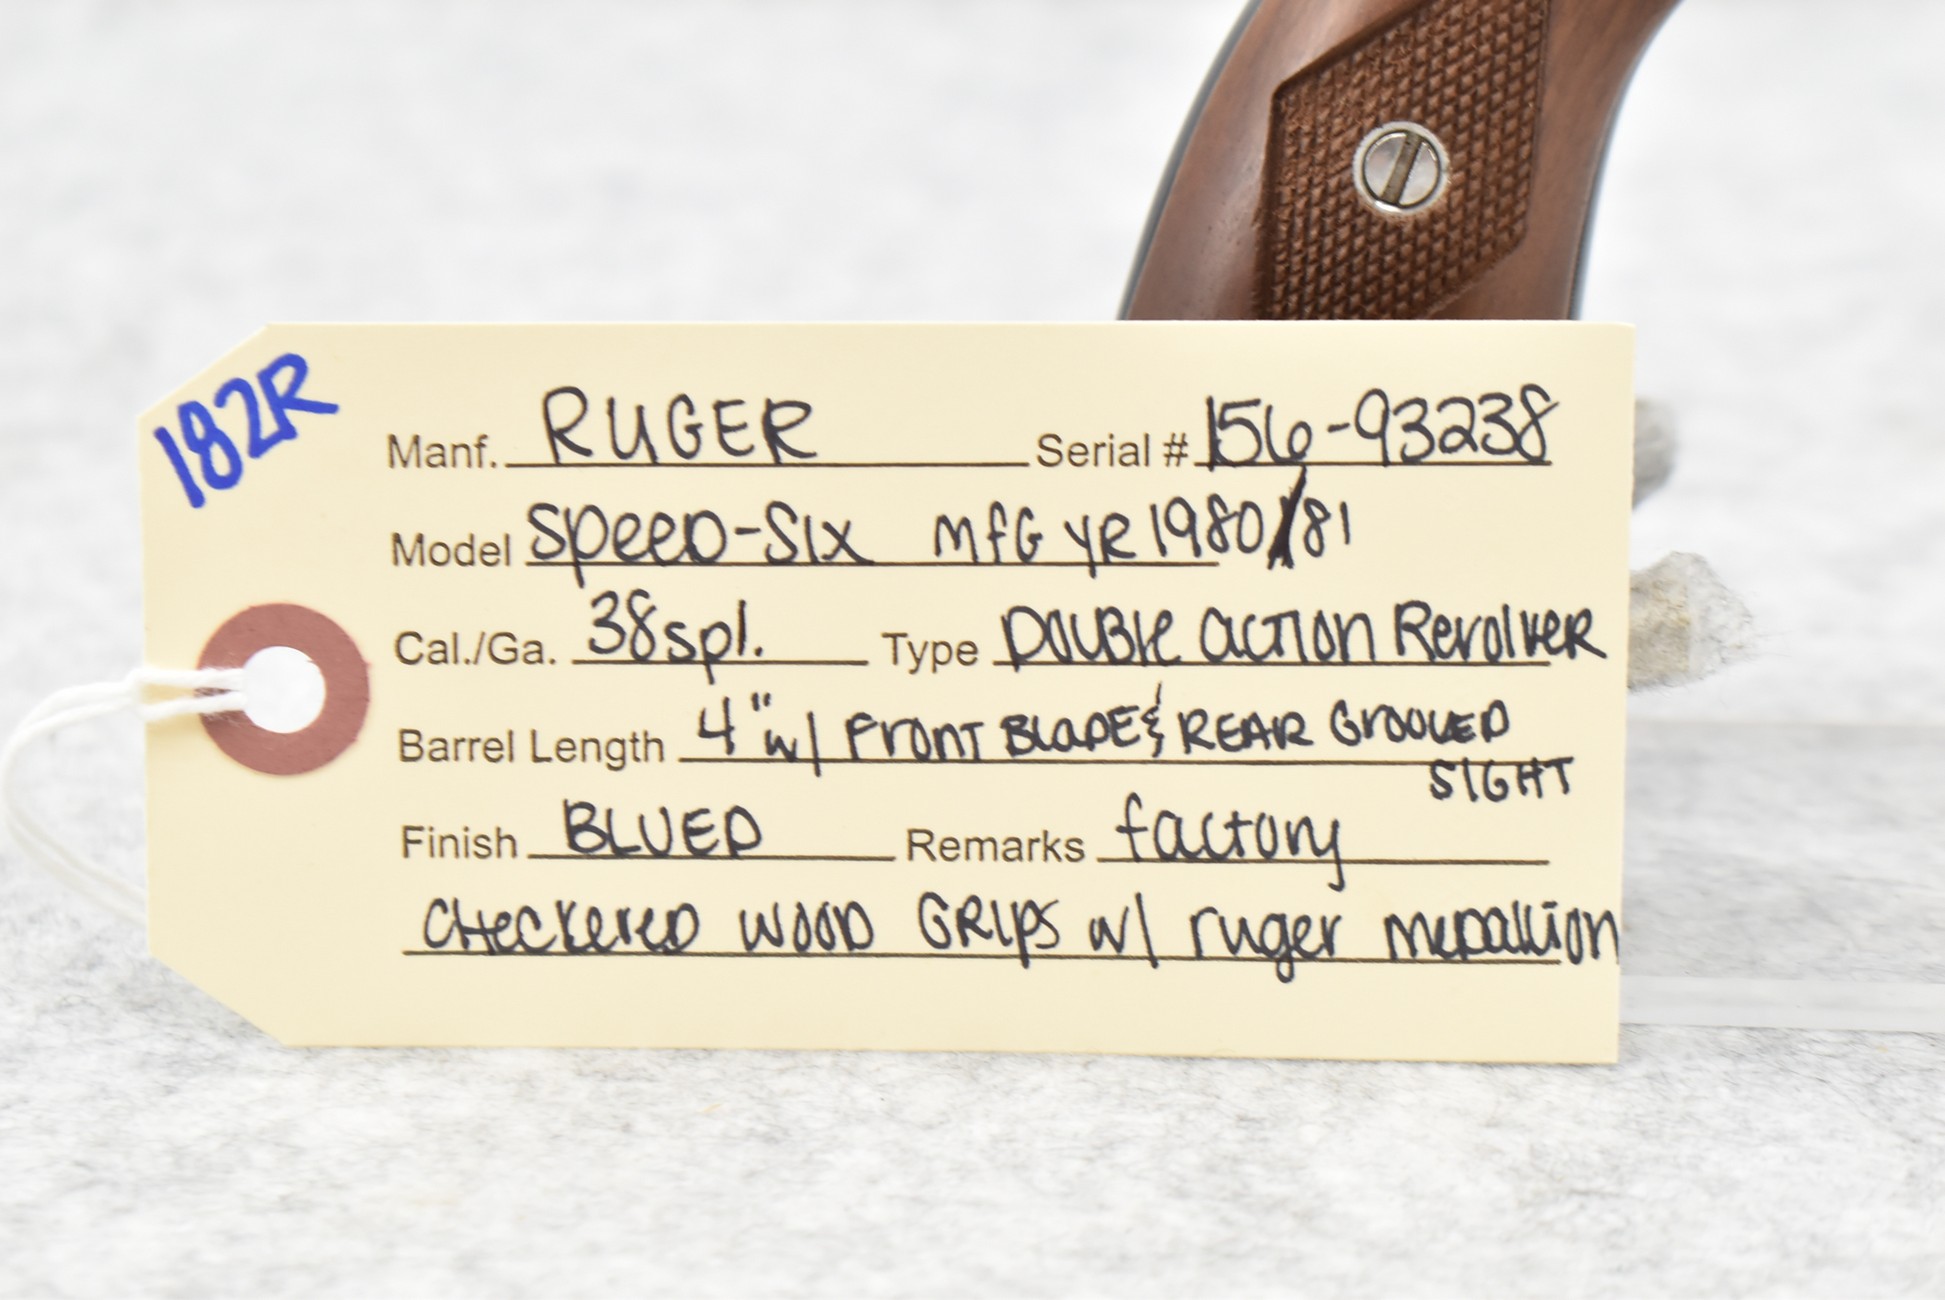 182R
Manf. RUGER Serial # 156-93238
Model Speed-Six MFG YR 1980/81
Cal./Ga. 38 spl. Type Double Action Revolver
Barrel Length 4" w/ Front Blade & Rear Grooved
Sight
Finish BLUED Remarks factory
Checkered Wood Grips w/ ruger medallion